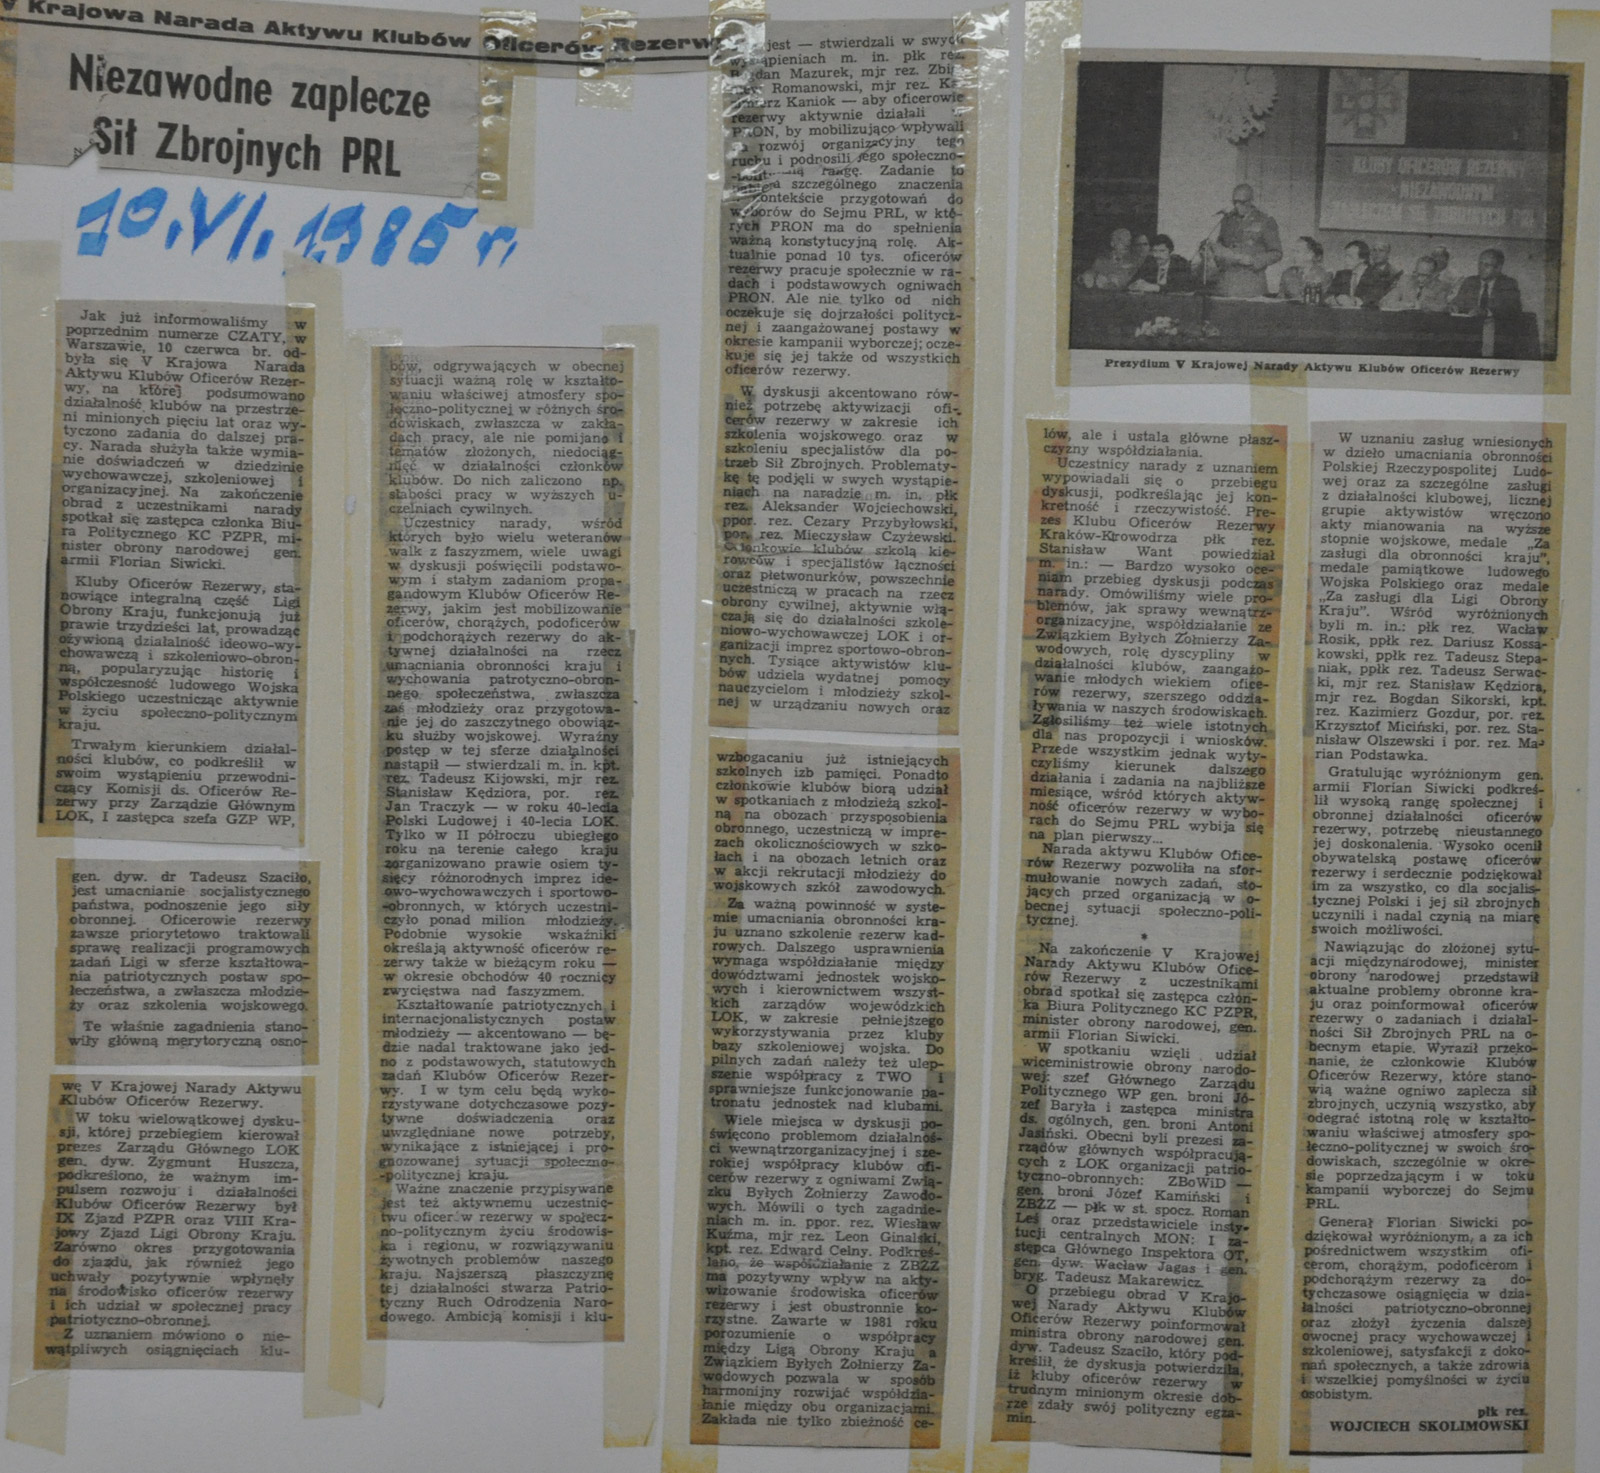 V Krajowa Narada Aktywu Klubów Oficerów Rezerwy
Niezawodne zaplecze
Sił Zbrojnych PRL
10.VI.1985 r.
Jak już informowaliśmy w
poprzednim numerze CZATY, w
Warszawie, 10 czerwca br. od-
była się V Krajowa Narada
Aktywu Klubów Oficerów Rezer-
wy, na której podsumowano
działalność klubów na przestrze-
ni minionych pięciu lat oraz wy-
tyczono zadania do dalszej pra-
cy. Narada służyła także wymia-
nie doświadczeń w dziedzinie
wychowawczej, szkoleniowej i
organizacyjnej. Na zakończenie
obrad z uczestnikami narady
spotkał się zastępca członka Biu-
ra Politycznego KC PZPR, mi-
nister obrony narodowej gen.
armii Florian Siwicki.
Kluby Oficerów Rezerwy, sta-
nowiące integralną część Ligi
Obrony Kraju, funkcjonują już
prawie trzydzieści lat, prowadząc
ożywioną działalność ideowo-wy-
chowawczą i szkoleniowo-obron-
ną, popularyzując historię i
współczesność ludowego Wojska
Polskiego uczestnicząc aktywnie
w życiu społeczno-politycznym
kraju.
Trwałym kierunkiem działal-
ności klubów, co podkreślił w
swoim wystąpieniu przewodni-
czący Komisji ds. Oficerów Re-
zerwy przy Zarządzie Głównym
LOK, I zastępca szefa GZP WP,
gen. dyw. dr Tadeusz Szaciło,
jest umacnianie socjalistycznego
państwa, podnoszenie jego siły
obronnej. Oficerowie rezerwy
zawsze priorytetowo traktowali
sprawę realizacji programowych
zadań Ligi w sferze kształtowa-
nia patriotycznych postaw spo-
łeczeństwa, a zwłaszcza młodzie-
ży oraz szkolenia wojskowego.
Te właśnie zagadnienia stano-
wiły główną merytoryczną osno-
wę V Krajowej Narady Aktywu
Klubów Oficerów Rezerwy.
W toku wielowątkowej dysku-
sji, której przebiegiem kierował
prezes Zarządu Głównego LOK
gen. dyw. Zygmunt Huszcza,
podkreślono, że ważnym im-
pulsem rozwoju i działalności
Klubów Oficerów Rezerwy był
IX Zjazd PZPR oraz VIII Kra-
jowy Zjazd Ligi Obrony Kraju.
Zarówno okres przygotowania
do zjazdu, jak również jego
uchwały pozytywnie wpłynęły
na środowisko oficerów rezerwy
i ich udział w społecznej pracy
patriotyczno-obronnej.
Z uznaniem mówiono o nie-
wątpliwych osiągnięciach klu-
bów, odgrywających w obecnej
sytuacji ważną rolę w kształto-
waniu właściwej atmosfery spo-
łeczno-politycznej w różnych śro-
dowiskach, zwłaszcza w zakła-
dach pracy, ale nie pomijano i
tematów złożonych, niedociąg-
nięć w działalności członków
klubów. Do nich zaliczono np.
słabości pracy w wyższych u-
czelniach cywilnych.
Uczestnicy narady, wśród
których było wielu weteranów
walk z faszyzmem, wiele uwagi
w dyskusji poświęcili podstawo-
wym i stałym zadaniom propa-
gandowym Klubów Oficerów Re-
zerwy, jakim jest mobilizowanie
oficerów, chorążych, podoficerów
i podchorążych rezerwy do ak-
tywnej działalności na rzecz
umacniania obronności kraju i
wychowania patrotyczno-obron-
nego społeczeństwa, zwłaszcza
zaś młodzieży oraz przygotowa-
nie jej do zaszczytnego obowiąz-
ku służby wojskowej. Wyraźny
postęp w tej sferze działalności
nastąpił — stwierdzali m. in. kpt.
rez. Tadeusz Kijowski, mjr rez.
Stanisław Kędziora, por. rez.
Jan Traczyk — w roku 40-lecia
Polski Ludowej i 40-lecia LOK.
Tylko w II półroczu ubiegłego
roku na terenie całego kraju
zorganizowano prawie osiem ty-
sięcy różnorodnych imprez ide-
owo-wychowawczych i sportowo-
-obronnych, w których uczestni-
czyło ponad milion młodzieży.
Podobnie wysokie wskaźniki
określają aktywność oficerów re-
zerwy także w bieżącym roku —
w okresie obchodów 40 rocznicy
zwycięstwa nad faszyzmem.
Kształtowanie patriotycznych i
internacjonalistycznych postaw
młodzieży — akcentowano — bę-
dzie nadal traktowane jako jed-
no z podstawowych, statutowych
zadań Klubów Oficerów Rezer-
wy. I w tym celu będą wyko-
rzystywane dotychczasowe pozy-
tywne doświadczenia oraz
uwzględniane nowe potrzeby,
wynikające z istniejącej i pro-
gnozowanej sytuacji społeczno-
-politycznej kraju.
Ważne znaczenie przypisywane
jest też aktywnemu uczestnic-
twu oficerów rezerwy w społecz-
no-politycznym życiu środowis-
ka i regionu, w rozwiązywaniu
żywotnych problemów naszego
kraju. Najszerszą płaszczyznę
tej działalności stwarza Patrio-
tyczny Ruch Odrodzenia Naro-
dowego. Ambicją komisji i klu-
jest — stwierdzali w swych
wystąpieniach m. in. płk rez.
Bogdan Mazurek, mjr rez. Zbi-
Romanowski, mjr rez. Ka-
zimierz Kaniok — aby oficerowie
rezerwy aktywnie działali w
PRON, by mobilizująco wpływali
na rozwój organizacyjny tego
ruchu i podnosili jego społeczno-
rangę. Zadanie to
szczególnego znaczenia
kontekście przygotowań do
wyborów do Sejmu PRL, w któ-
rych PRON ma do spełnienia
ważną konstytucyjną rolę. Ak-
tualnie ponad 10 tys. oficerów
rezerwy pracuje społecznie w ra-
dach i podstawowych ogniwach
PRON. Ale nie tylko od nich
oczekuje się dojrzałości politycz-
nej i zaangażowanej postawy w
okresie kampanii wyborczej; ocze-
kuje się jej także od wszystkich
oficerów rezerwy.
W dyskusji akcentowano rów-
nież potrzebę aktywizacji ofi-
cerów rezerwy w zakresie ich
szkolenia wojskowego oraz w
szkoleniu specjalistów dla po-
trzeb Sił Zbrojnych. Problematy-
kę tę podjęli w swych wystąpie-
niach na naradzie m. in. płk
rez. Aleksander Wojciechowski,
ppor. rez. Cezary Przybyłowski,
por. rez. Mieczysław Czyżewski.
Członkowie klubów szkolą kie-
rowców i specjalistów łączności
oraz płetwonurków, powszechnie
uczestniczą w pracach na rzecz
obrony cywilnej, aktywnie włą-
czają się do działalności szkole-
niowo-wychowawczej LOK i or-
ganizacji imprez sportowo-obron-
nych. Tysiące aktywistów klu-
bów udziela wydatnej pomocy
nauczycielom i młodzieży szkol-
nej w urządzaniu nowych oraz
wzbogacaniu już istniejących
szkolnych izb pamięci. Ponadto
członkowie klubów biorą udział
w spotkaniach z młodzieżą szkol-
ną na obozach przysposobienia
obronnego, uczestniczą w impre-
zach okolicznościowych w szko-
łach i na obozach letnich oraz
w akcji rekrutacji młodzieży do
wojskowych szkół zawodowych.
Za ważną powinność w syste-
mie umacniania obronności kra-
ju uznano szkolenie rezerw kad-
rowych. Dalszego usprawnienia
wymaga współdziałanie między
dowództwami jednostek wojsko-
wych i kierownictwem wszyst-
kich zarządów wojewódzkich
LOK, w zakresie pełniejszego
wykorzystywania przez kluby
bazy szkoleniowej wojska. Do
pilnych zadań należy też ulep-
szenie współpracy z TWO i
sprawniejsze funkcjonowanie pa-
tronatu jednostek nad klubami.
Wiele miejsca w dyskusji po-
święcono problemom działalnoś-
ci wewnątrzorganizacyjnej i sze-
rokiej współpracy klubów ofi-
cerów rezerwy z ogniwami Zwią-
zku Byłych Żołnierzy Zawodo-
wych. Mówili o tych zagadnie-
niach m. in. ppor. rez. Wiesław
Kuźma, mjr rez. Leon Ginalski,
kpt. rez. Edward Celny. Podkreś-
lano, że współdziałanie z ZBŻZ
ma pozytywny wpływ na akty-
wizowanie środowiska oficerów
rezerwy i jest obustronnie ko-
rzystne. Zawarte w 1981 roku
porozumienie o współpracy
między Ligą Obrony Kraju a
Związkiem Byłych Żołnierzy Za-
wodowych pozwala w sposób
harmonijny rozwijać współdzia-
łanie między obu organizacjami.
Zakłada nie tylko zbieżność ce-
LOK
KLUBY OFICERÓW REZERWY
NIEZAWODNYM
ZAPLECZEM SIŁ ZBROJNYCH PRL
Prezydium V Krajowej Narady Aktywu Klubów Oficerów Rezerwy
lów, ale i ustala główne płasz-
czyzny współdziałania.
Uczestnicy narady z uznaniem
wypowiadali się o przebiegu
dyskusji, podkreślając jej kon-
kretność i rzeczywistość. Pre-
zes Klubu Oficerów Rezerwy
Kraków-Krowodrza płk rez.
Stanisław Want powiedział
m. in.: — Bardzo wysoko oce-
niam przebieg dyskusji podczas
narady. Omówiliśmy wiele pro-
blemów, jak sprawy wewnątrz-
organizacyjne, współdziałanie ze
Związkiem Byłych Żołnierzy Za-
wodowych, rolę dyscypliny w
działalności klubów, zaangażo-
wanie młodych wiekiem ofice-
rów rezerwy, szerszego oddzia-
ływania w naszych środowiskach.
Zgłosiliśmy też wiele istotnych
dla nas propozycji i wniosków.
Przede wszystkim jednak wyty-
czyliśmy kierunek dalszego
działania i zadania na najbliższe
miesiące, wśród których aktyw-
ność oficerów rezerwy w wybo-
rach do Sejmu PRL wybija się
na plan pierwszy...
Narada aktywu Klubów Ofice-
rów Rezerwy pozwoliła na sfor-
mułowanie nowych zadań, sto-
jących przed organizacją w o-
becnej sytuacji społeczno-poli-
tycznej.
*
Na zakończenie V Krajowej
Narady Aktywu Klubów Ofice-
rów Rezerwy z uczestnikami
obrad spotkał się zastępca człon-
ka Biura Politycznego KC PZPR,
minister obrony narodowej, gen.
armii Florian Siwicki.
W spotkaniu wzięli udział
wiceministrowie obrony narodo-
wej: szef Głównego Zarządu
Politycznego WP gen. broni Jó-
zef Baryła i zastępca ministra
ds. ogólnych, gen. broni Antoni
Jasiński. Obecni byli prezesi za-
rządów głównych współpracują-
cych z LOK organizacji patrio-
tyczno-obronnych: ZBoWiD —
gen. broni Józef Kamiński i
ZBŻZ — płk w st. spocz. Roman
Leś oraz przedstawiciele insty-
tucji centralnych MON: I za-
stępca Głównego Inspektora OT,
gen. dyw. Wacław Jagas i gen.
bryg. Tadeusz Makarewicz.
O przebiegu obrad V Krajo-
wej Narady Aktywu Klubów
Oficerów Rezerwy poinformował
ministra obrony narodowej gen.
dyw. Tadeusz Szaciło, który pod-
kreślił, że dyskusja potwierdziła,
iż kluby oficerów rezerwy w
trudnym minionym okresie dob-
rze zdały swój polityczny egza-
min.
W uznaniu zasług wniesionych
w dzieło umacniania obronności
Polskiej Rzeczypospolitej Ludo-
wej oraz za szczególne zasługi
z działalności klubowej, licznej
grupie aktywistów wręczono
akty mianowania na wyższe
stopnie wojskowe, medale „Za
zasługi dla obronności kraju",
medale pamiątkowe ludowego
Wojska Polskiego oraz medale
„Za zasługi dla Ligi Obrony
Kraju". Wśród wyróżnionych
byli m. in.: płk rez. Wacław
Rosik, ppłk rez. Dariusz Kossa-
kowski, ppłk rez. Tadeusz Stepa-
niak, ppłk rez. Tadeusz Serwac-
ki, mjr rez. Stanisław Kędziora,
mjr rez. Bogdan Sikorski, kpt.
rez. Kazimierz Gozdur, por. rez.
Krzysztof Miciński, por. rez. Sta-
nisław Olszewski i por. rez. Ma-
rian Podstawka.
Gratulując wyróżnionym gen.
armii Florian Siwicki podkreś-
lił wysoką rangę społecznej i
obronnej działalności oficerów
rezerwy, potrzebę nieustannego
jej doskonalenia. Wysoko ocenił
obywatelską postawę oficerów
rezerwy i serdecznie podziękował
im za wszystko, co dla socjalis-
tycznej Polski i jej sił zbrojnych
uczynili i nadal czynią na miarę
swoich możliwości.
Nawiązując do złożonej sytu-
acji międzynarodowej, minister
obrony narodowej przedstawił
aktualne problemy obronne kra-
ju oraz poinformował oficerów
rezerwy o zadaniach i działal-
ności Sił Zbrojnych PRL na o-
becnym etapie. Wyraził przeko-
nanie, że członkowie Klubów
Oficerów Rezerwy, które stano-
wią ważne ogniwo zaplecza sił
zbrojnych, uczynią wszystko, aby
odegrać istotną rolę w kształto-
waniu właściwej atmosfery spo-
łeczno-politycznej w swoich śro-
dowiskach, szczególnie w okre-
sie poprzedzającym i w toku
kampanii wyborczej do Sejmu
PRL.
Generał Florian Siwicki po-
dziękował wyróżnionym, a za ich
pośrednictwem wszystkim ofi-
cerom, chorążym, podoficerom i
podchorążym rezerwy za do-
tychczasowe osiągnięcia w dzia-
łalności patriotyczno-obronnej
oraz złożył życzenia dalszej
owocnej pracy wychowawczej i
szkoleniowej, satysfakcji z doko-
nań społecznych, a także zdrowia
i wszelkiej pomyślności w życiu
osobistym.
płk rez.
WOJCIECH SKOLIMOWSKI